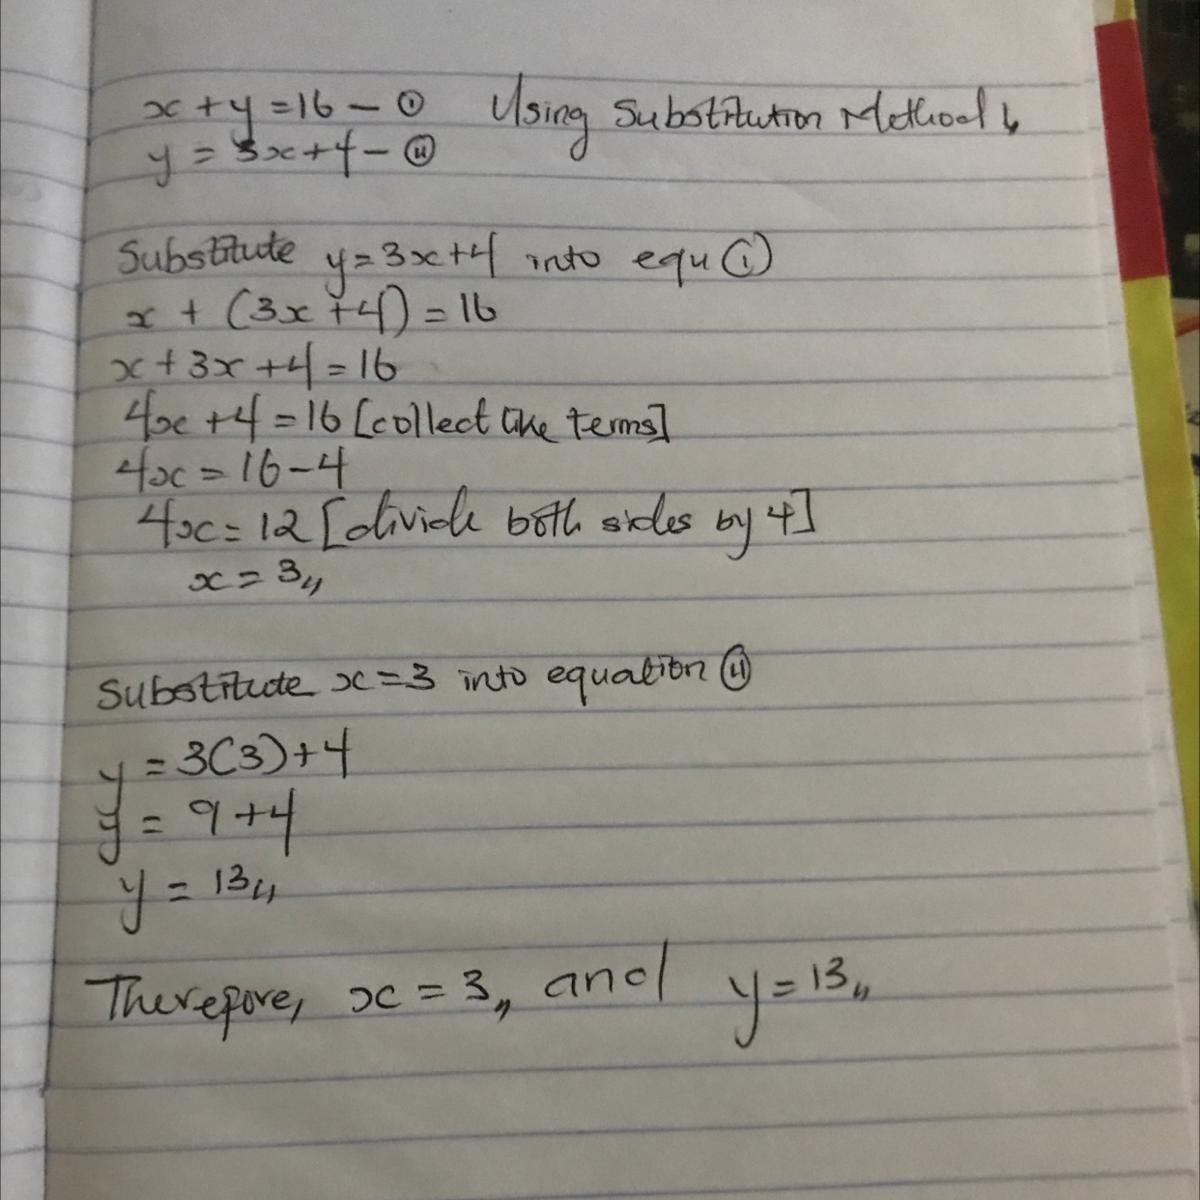 x + y = 16 - ① Using Substitution Method
y = 3x + 4 - ⑪
Substitute y = 3x + 4 into equ ①
x + (3x + 4) = 16
x + 3x + 4 = 16
4x + 4 = 16 [collect like terms]
4x = 16 - 4
4x = 12 [divide both sides by 4]
x = 3,,
Substitute x = 3 into equation ⑪
y = 3(3) + 4
y = 9 + 4
y = 13,,
Therefore, x = 3,, and y = 13,,